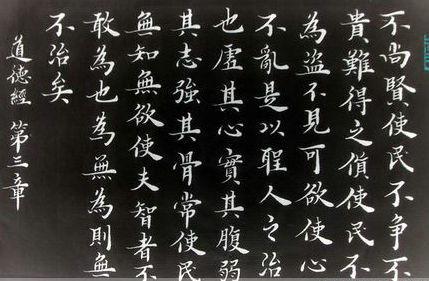 不尚賢使民不争不
貴難得之貨使民不
為盜不見可欲使心
不亂是以聖人之治
也虛其心實其腹弱
其志強其骨常使民
無知無欲使夫智者不
敢為也為無為則無
不治矣
道德經 第三章